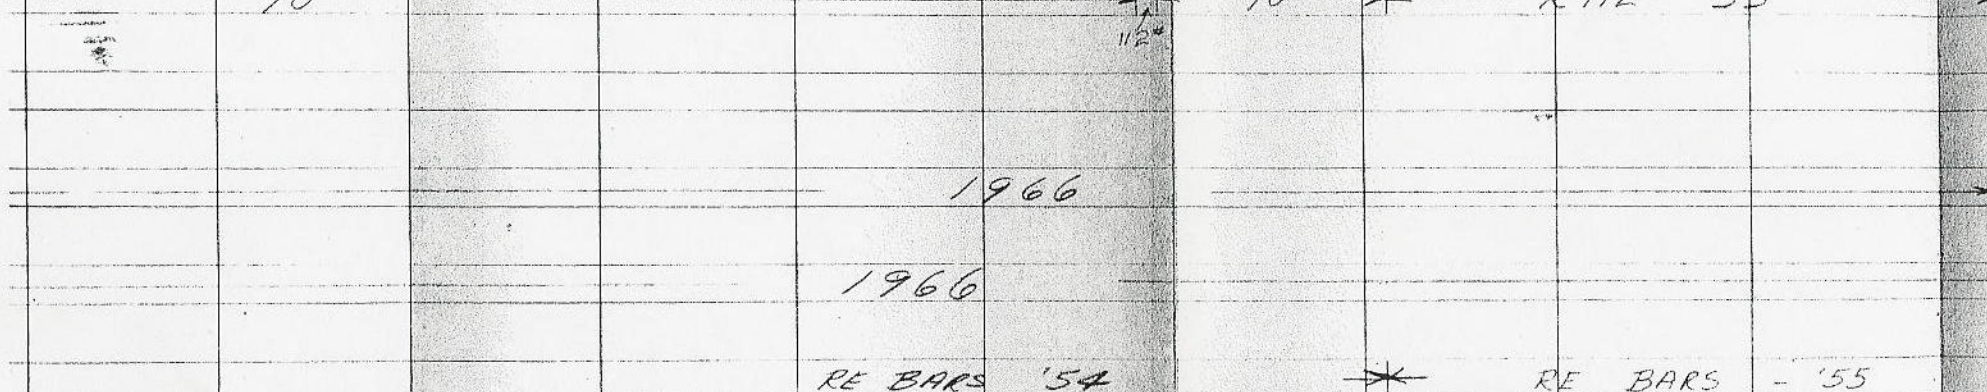 112#
1966
1966
RE BARS '54 RE BARS - '55